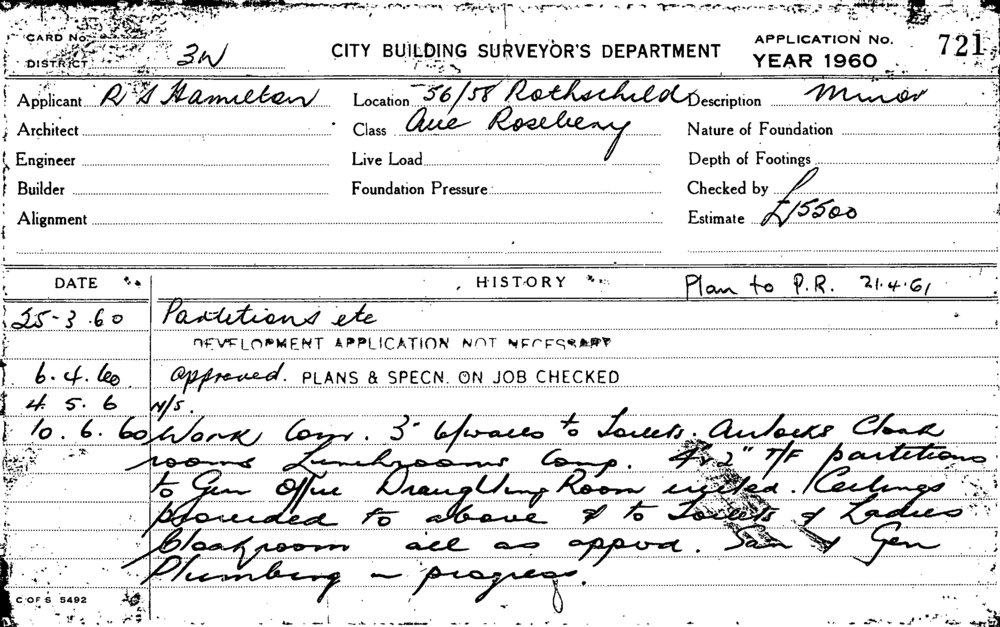 CARD No.
DISTRICT 3W
CITY BUILDING SURVEYOR'S DEPARTMENT
APPLICATION No. 721
YEAR 1960
Applicant R S Hamilton
Location 56/58 Rothschild
Description Minor
Architect
Class Ave Rosebery
Nature of Foundation
Engineer
Live Load
Depth of Footings
Builder
Foundation Pressure
Checked by
Alignment
Estimate £15500
DATE
HISTORY
Plan to P.R. 21.4.61
25-3.60 Partitions etc
DEVELOPMENT APPLICATION NOT NECESSARY
6.4.60 approved. PLANS & SPECN. ON JOB CHECKED
4.5.6 N/S.
10.6.60 Work Comr. 3" b/walls to Toilets. Cloak
rooms Lunchrooms Comp. 4x2" T/F partitions
to Gen Office Draughting Room. Ceilings
provided to above & to Toilets & Ladies
Cloakroom all as appvd. San & Gen
Plumbing in progress.
C OF S 5492